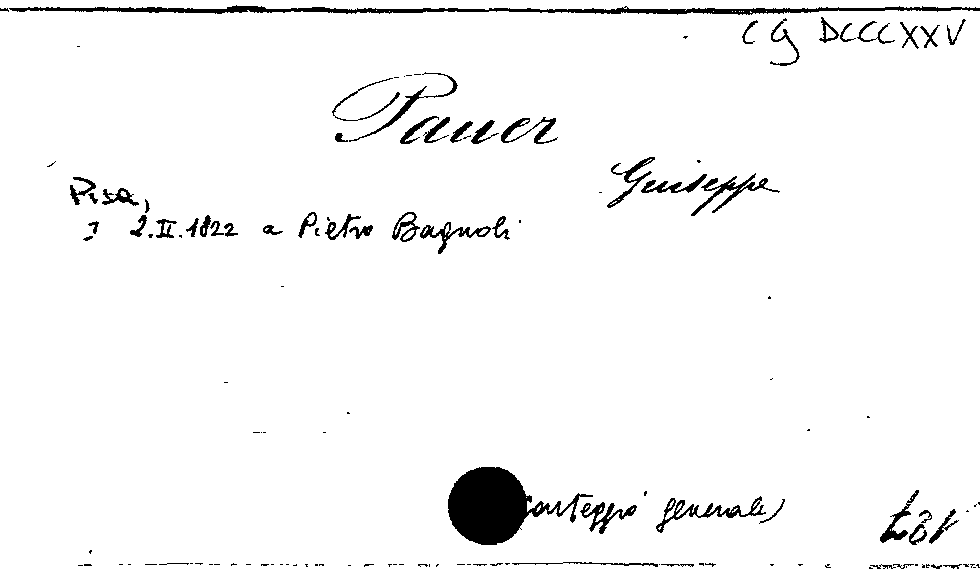 CG DCCCXXV
Pauer
Giuseppe
Pisa,
2.II.1822 a Pietro Bagnoli
Carteggio generale)